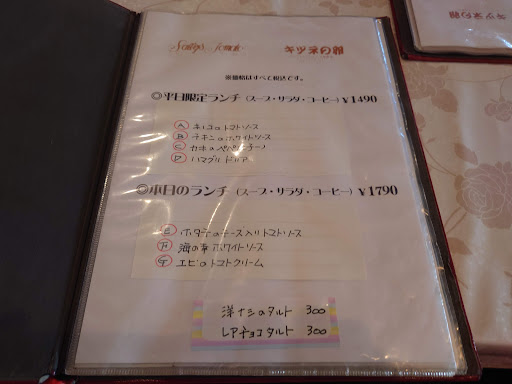 キツネの館
※価格はすべて税込です。
◎平日限定ランチ（スープ・サラダ・コーヒー）¥1490
Ⓐ キノコのトマトソース
Ⓑ チキンのホワイトソース
Ⓒ カキのペペロンチーノ
Ⓓ ハマグリ ドリア
◎本日のランチ（スープ・サラダ・コーヒー）¥1790
Ⓔ ホタテのチーズ入りトマトソース
Ⓕ 海の幸 ホワイトソース
Ⓖ エビのトマトクリーム
洋ナシのタルト 300
レアチョコタルト 300